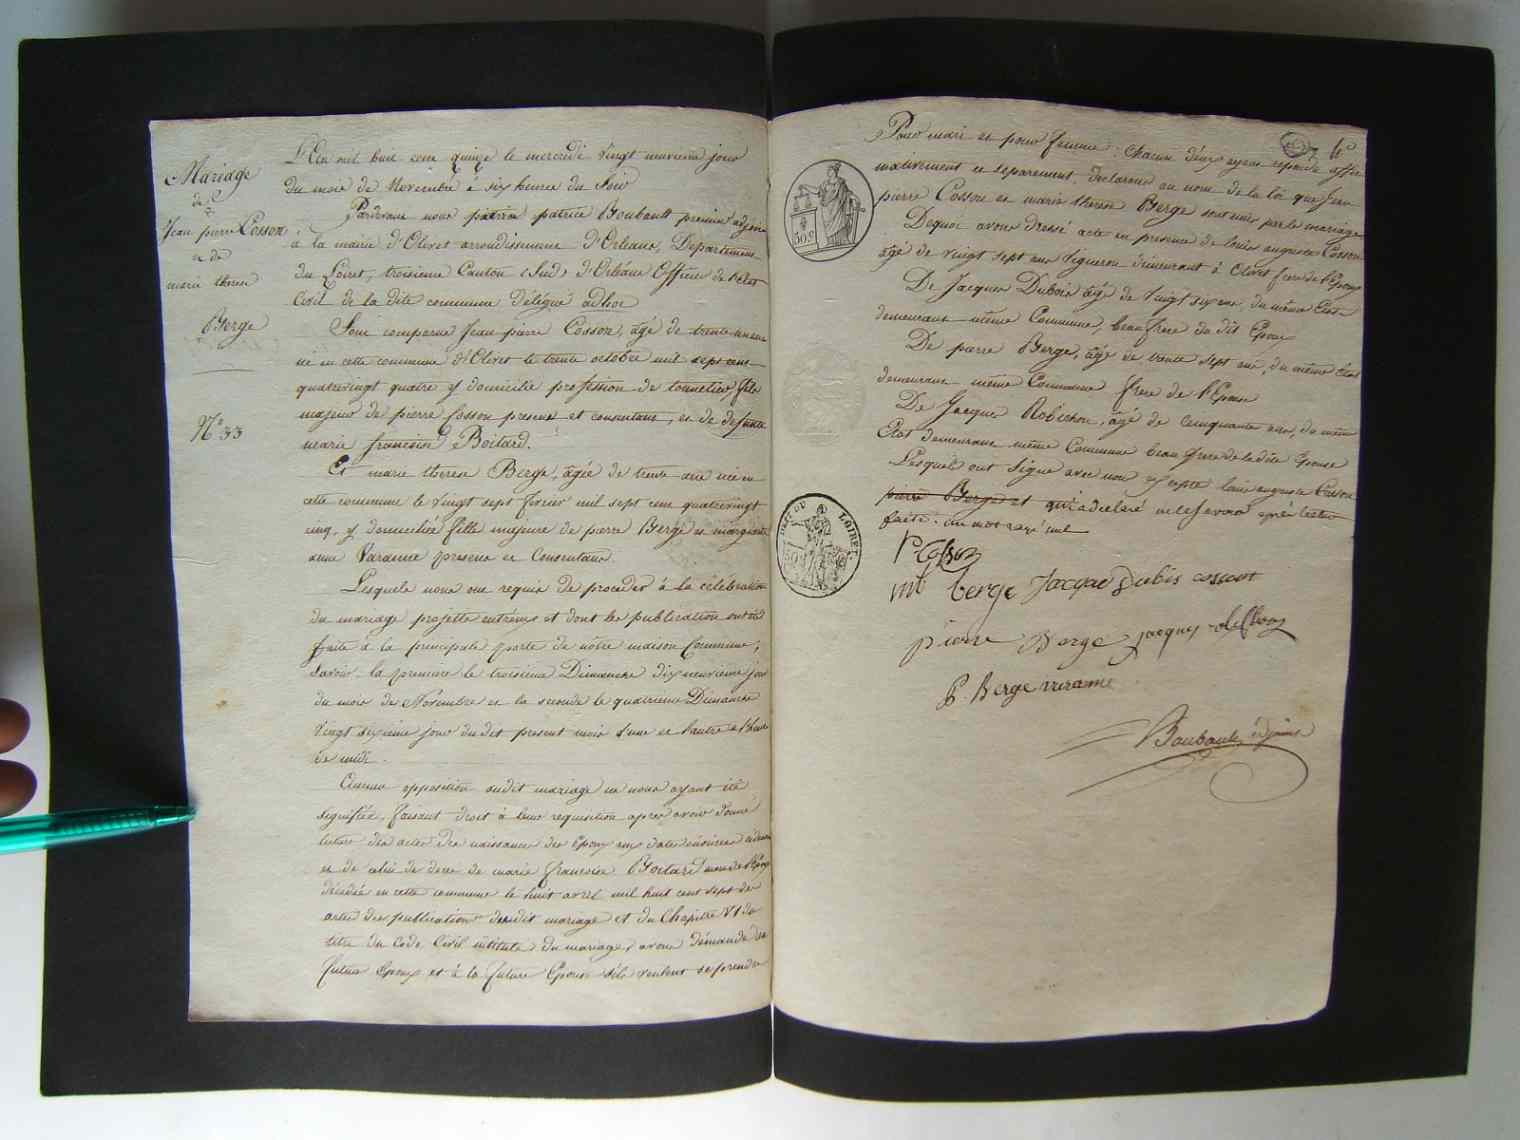 Mariage
de
Jean pierre Cosson
et de
marie therese
Berge
N.º 33
L'An mil huit cent quinze le mercredi vingt neuvieme jour
du mois de Novembre à six heures du Soir
Pardevant nous patrice Boubault premier adjoint
à la mairie d'Olivet arrondissement d'Orléans, Departement
du Loiret, troisieme Canton (Sud) d'Orléans Officier de l'état
Civil de la dite commune délégué adhoc
Sont comparus Jean pierre Cosson, âgé de trente un ans
né en cette commune d'Olivet le trente octobre mil sept cent
quatrevingt quatre y domicilié profession de tonnelier, fils
majeur de pierre Cosson present et consentant, et de defunte
marie françoise Boitard.
Et marie therese Berge, âgée de trente ans née en
cette commune le vingt sept fevrier mil sept cent quatrevingt
cinq, y domiciliée fille majeure de pierre Berge et marguerite
anne Varanne present et Consentans.
Lesquels nous ont requis de proceder à la célébration
du mariage projetté entr'eux et dont les publications ont été
faites à la principale porte de nôtre maison Commune,
Savoir la premiere le troisieme Dimanche dix neuvieme jour
du mois de Novembre et la seconde le quatrieme Dimanche
vingt sixieme jour du dit present mois l'une et l'autre à l'heure
de midi.
Aucune opposition audit mariage ne nous ayant été
signifiée, faisant droit à leur requisition après avoir donné
lecture des actes de naissance des Epoux aux dates énoncées
et de celui de deces de marie françoise Boitard mere de l'Epoux
décédée en cette commune le huit avril mil huit cent sept des
actes des publications dudit mariage et du Chapitre VI du
titre du Code Civil intitulé du mariage, avons demandé au
futur Epoux et à la future Epouse s'ils veulent se prendre
Pour mari et pour femme: chacun d'eux ayant repondu affir
mativement et separement, declarons au nom de la loi que Jean
pierre Cosson et marie therese Berge sont unis par le mariage
Dequoi avons dressé acte en presence de louis auguste Cosson
âgé de vingt sept ans vigneron demeurant à Olivet frere de l'Epoux
De Jacques Dubois âgé de vingt six ans, du même Etat
demeurant même Commune, beau frere du dit Epoux
De pierre Berge, âgé de trente sept ans, du même état
demeurant même Commune frere de l'Epouse
De Jacques Robichon, âgé de cinquante ans, du même
Etat demeurant même Commune beau frere de la dite Epouse
Lesquels ont signé avec nous excepté louis auguste Cosson
pierre Berge et qui a declaré ne le savoir après lecture
faite. un mot rayé nul
50c
DEPT DU LOIRET.
50c
mt berge Jacque Dubis cosson
pierre Berge jacques
P. Berge
Boubault adjoint